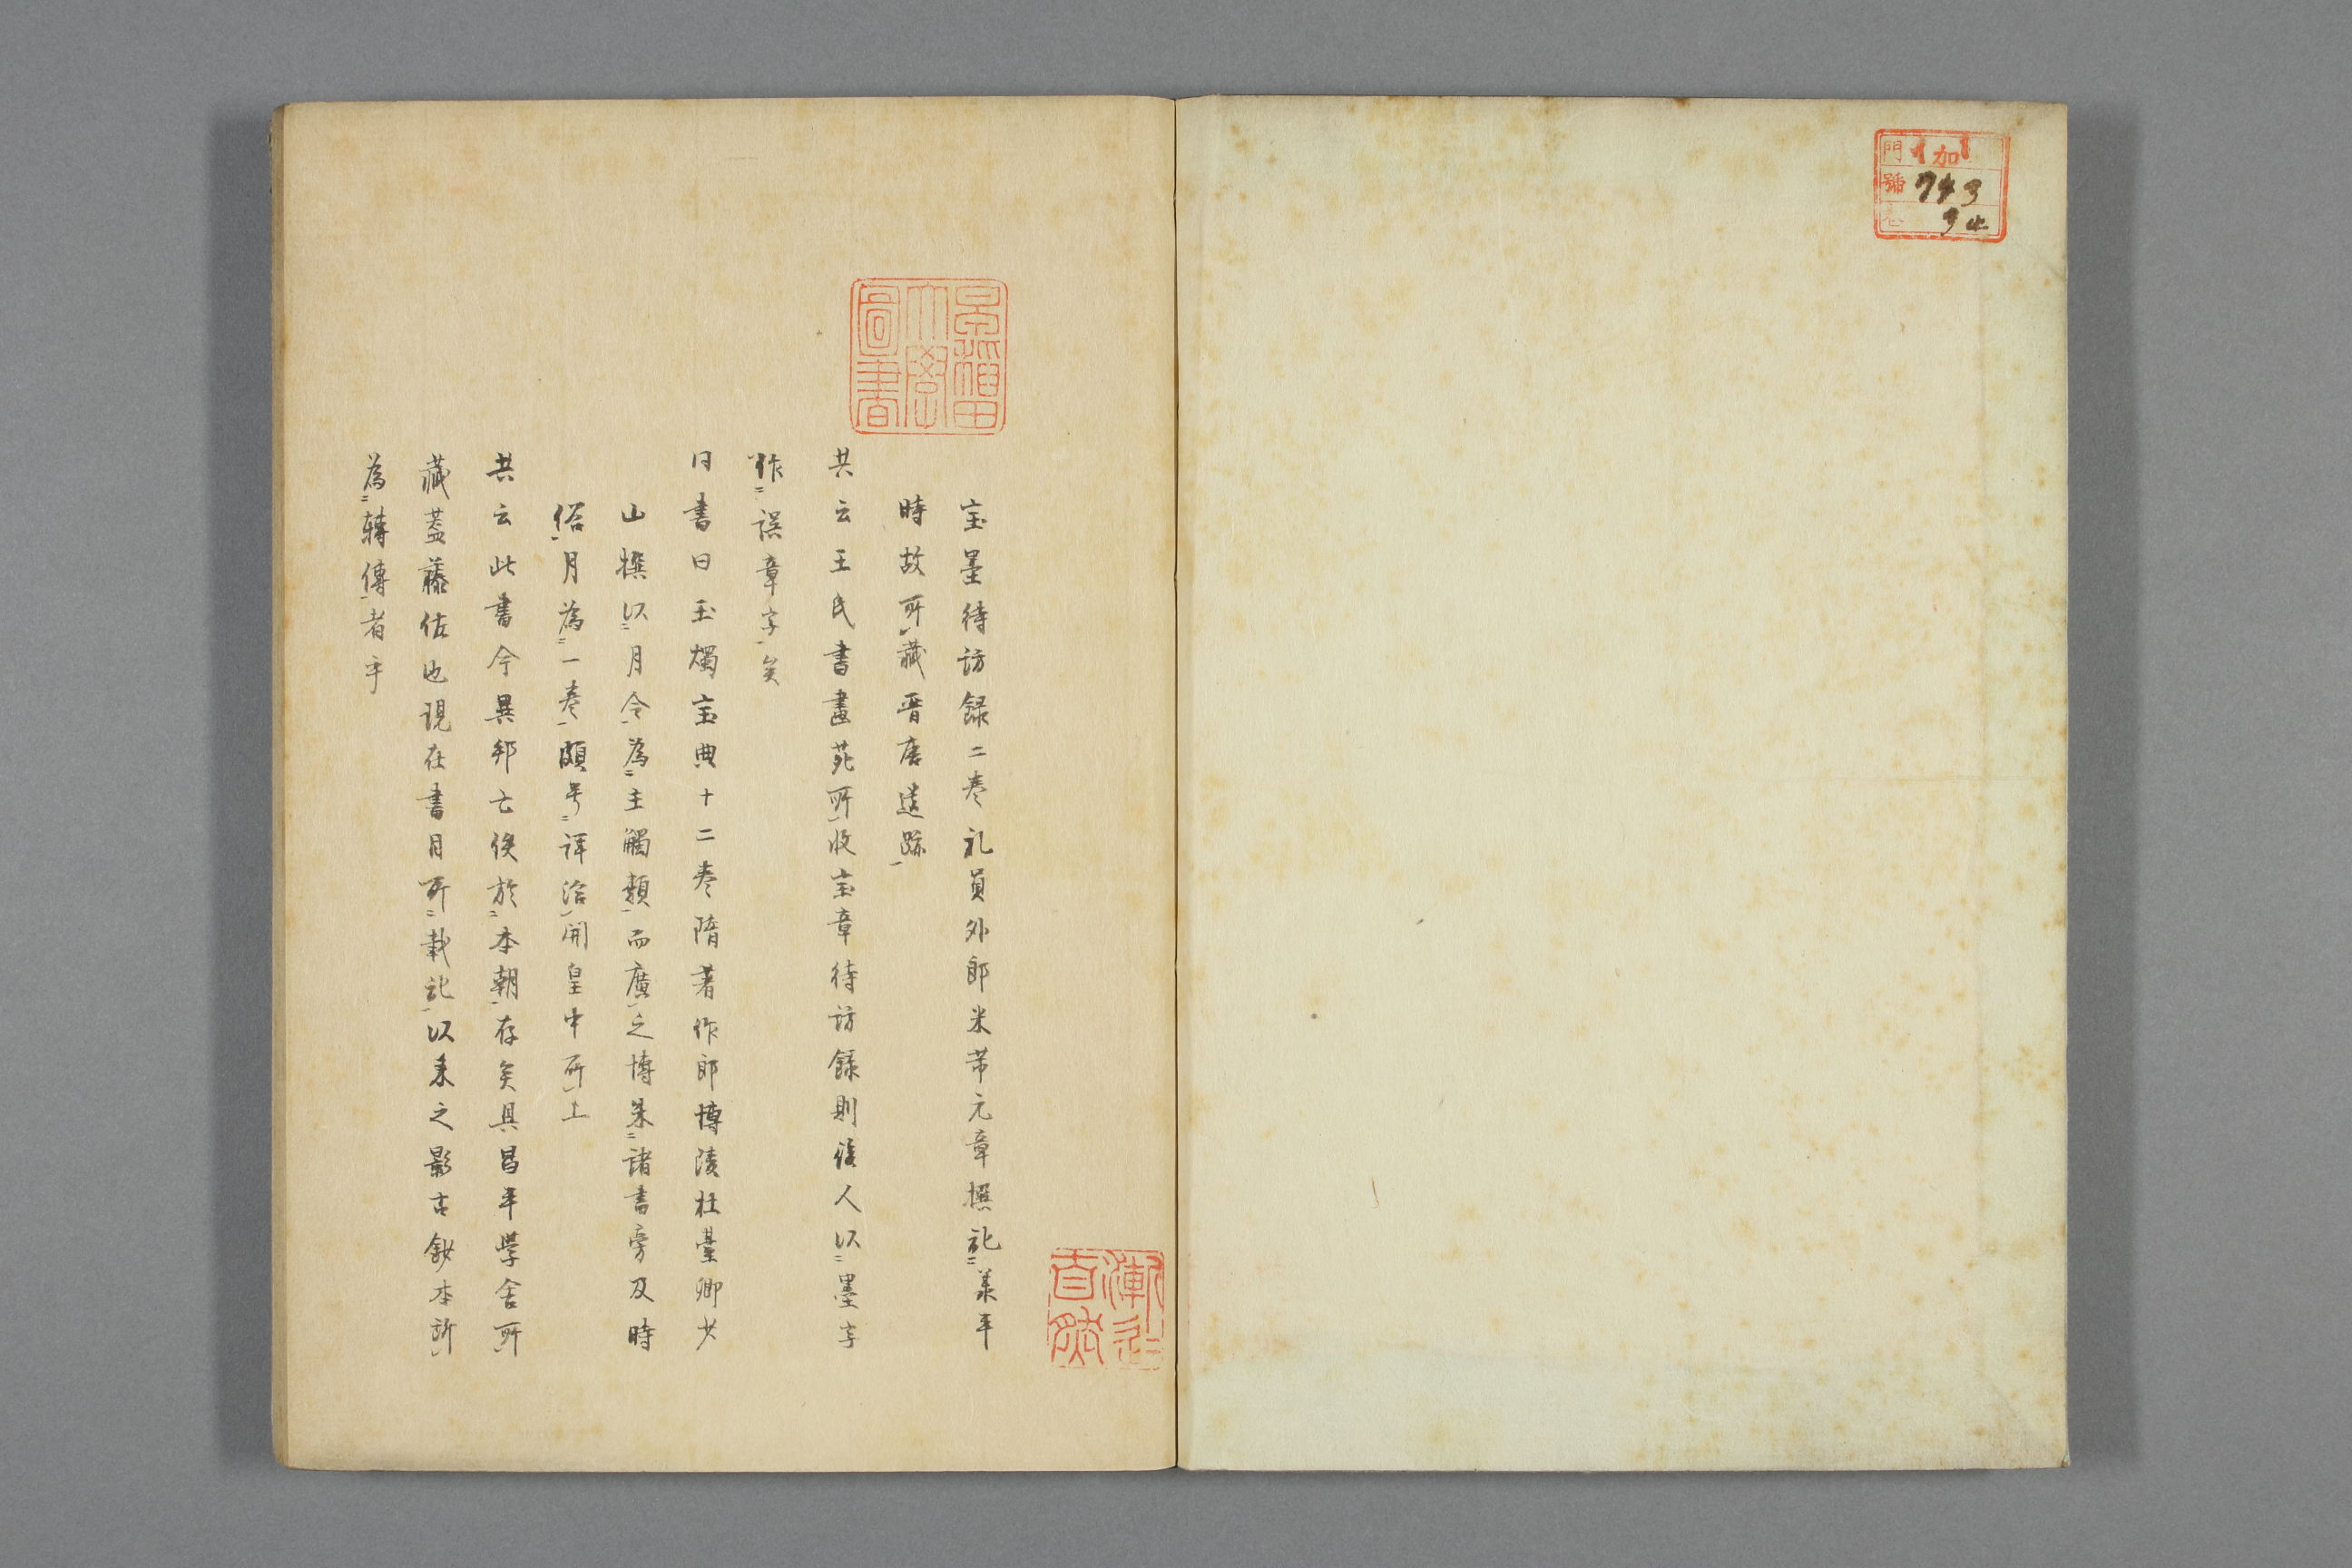 門 イ加1
號 743
卷 34
早稲田大學圖書
宝墨待訪録二巻礼員外郎米芾元章撰記羕平
時故所藏晋唐遺跡
共云王氏書畫苑所收宝章待訪録則後人以墨字
作誤章字矣
同書曰玉燭宝典十二巻隋著作郎博陵杜臺卿少
山撰以月令為主觸類而廣之博采諸書旁及時
俗月為一巻頗号詳洽開皇中所上
共云此書今異邦亡佚於本朝存矣具昌平學舎所
藏蓋藤佐也現在書目所載記以来之影古鈔本所
為轉傳者乎